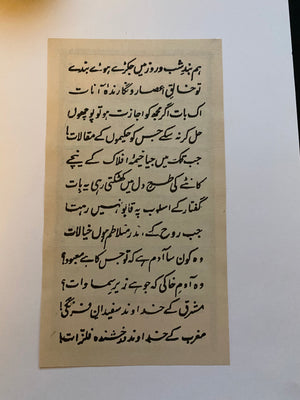 ہم بندِ شب و روز میں جکڑے ہوئے بندے
تو خالقِ اعصار و نگارندۂ آنات
اک بات اگر مجھ کو اجازت ہو تو پوچھوں
حل کر نہ سکے جس کو حکیموں کے مقالات!
جب تک میں جیا خیمۂ افلاک کے نیچے
کانٹے کی طرح دل میں کھٹکتی رہی یہ بات
گفتار کے اسلوب پہ قابو نہیں رہتا
جب روح کے اندر متلاطم ہوں خیالات
وہ کون سا آدم ہے کہ تو جس کا ہے معبود؟
وہ آدمِ خاکی کہ جو ہے زیرِ سماوات؟
مشرق کے خداوند سفیدانِ فرنگی!
مغرب کے خداوند درخشندہ فلزّات!